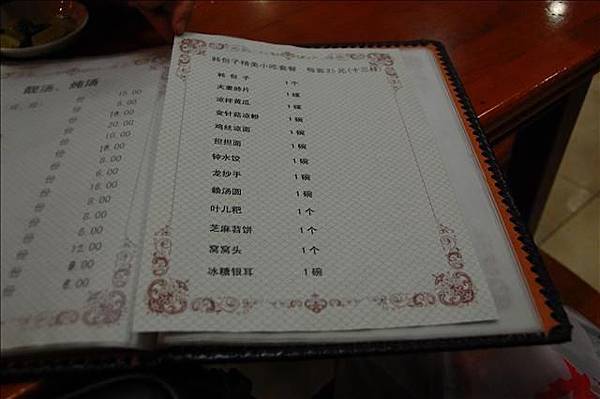 靓汤、炖汤
15.00
8.00
16.00
20.00
10.00
8.00
16.00
8.00
6.00
6.00
12.00
8.00
6.00
韩包子精美小吃套餐 每套35元(十三样)
韩包子 1个
夫妻肺片 1碟
凉拌黄瓜 1碟
金针菇凉粉 1碗
鸡丝凉面 1碗
担担面 1碗
钟水饺 1碗
龙抄手 1碗
赖汤圆 1碗
叶儿粑 1个
芝麻苕饼 1个
窝窝头 1个
冰糖银耳 1碗